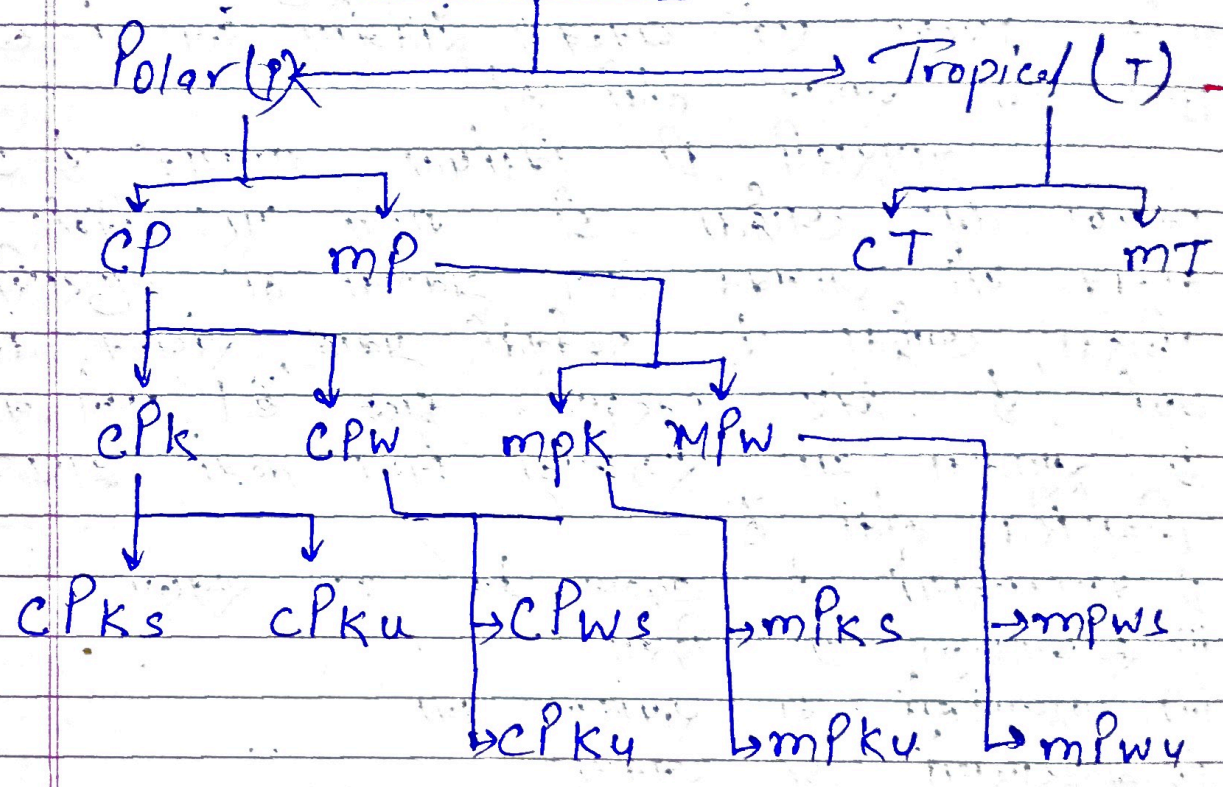 Polar (P) Tropical (T)
CP mP CT mT
CPK CPW mPK MPW
CPKs CPKu CPWs mPKs mPWs
CPKu mPKu mPWu